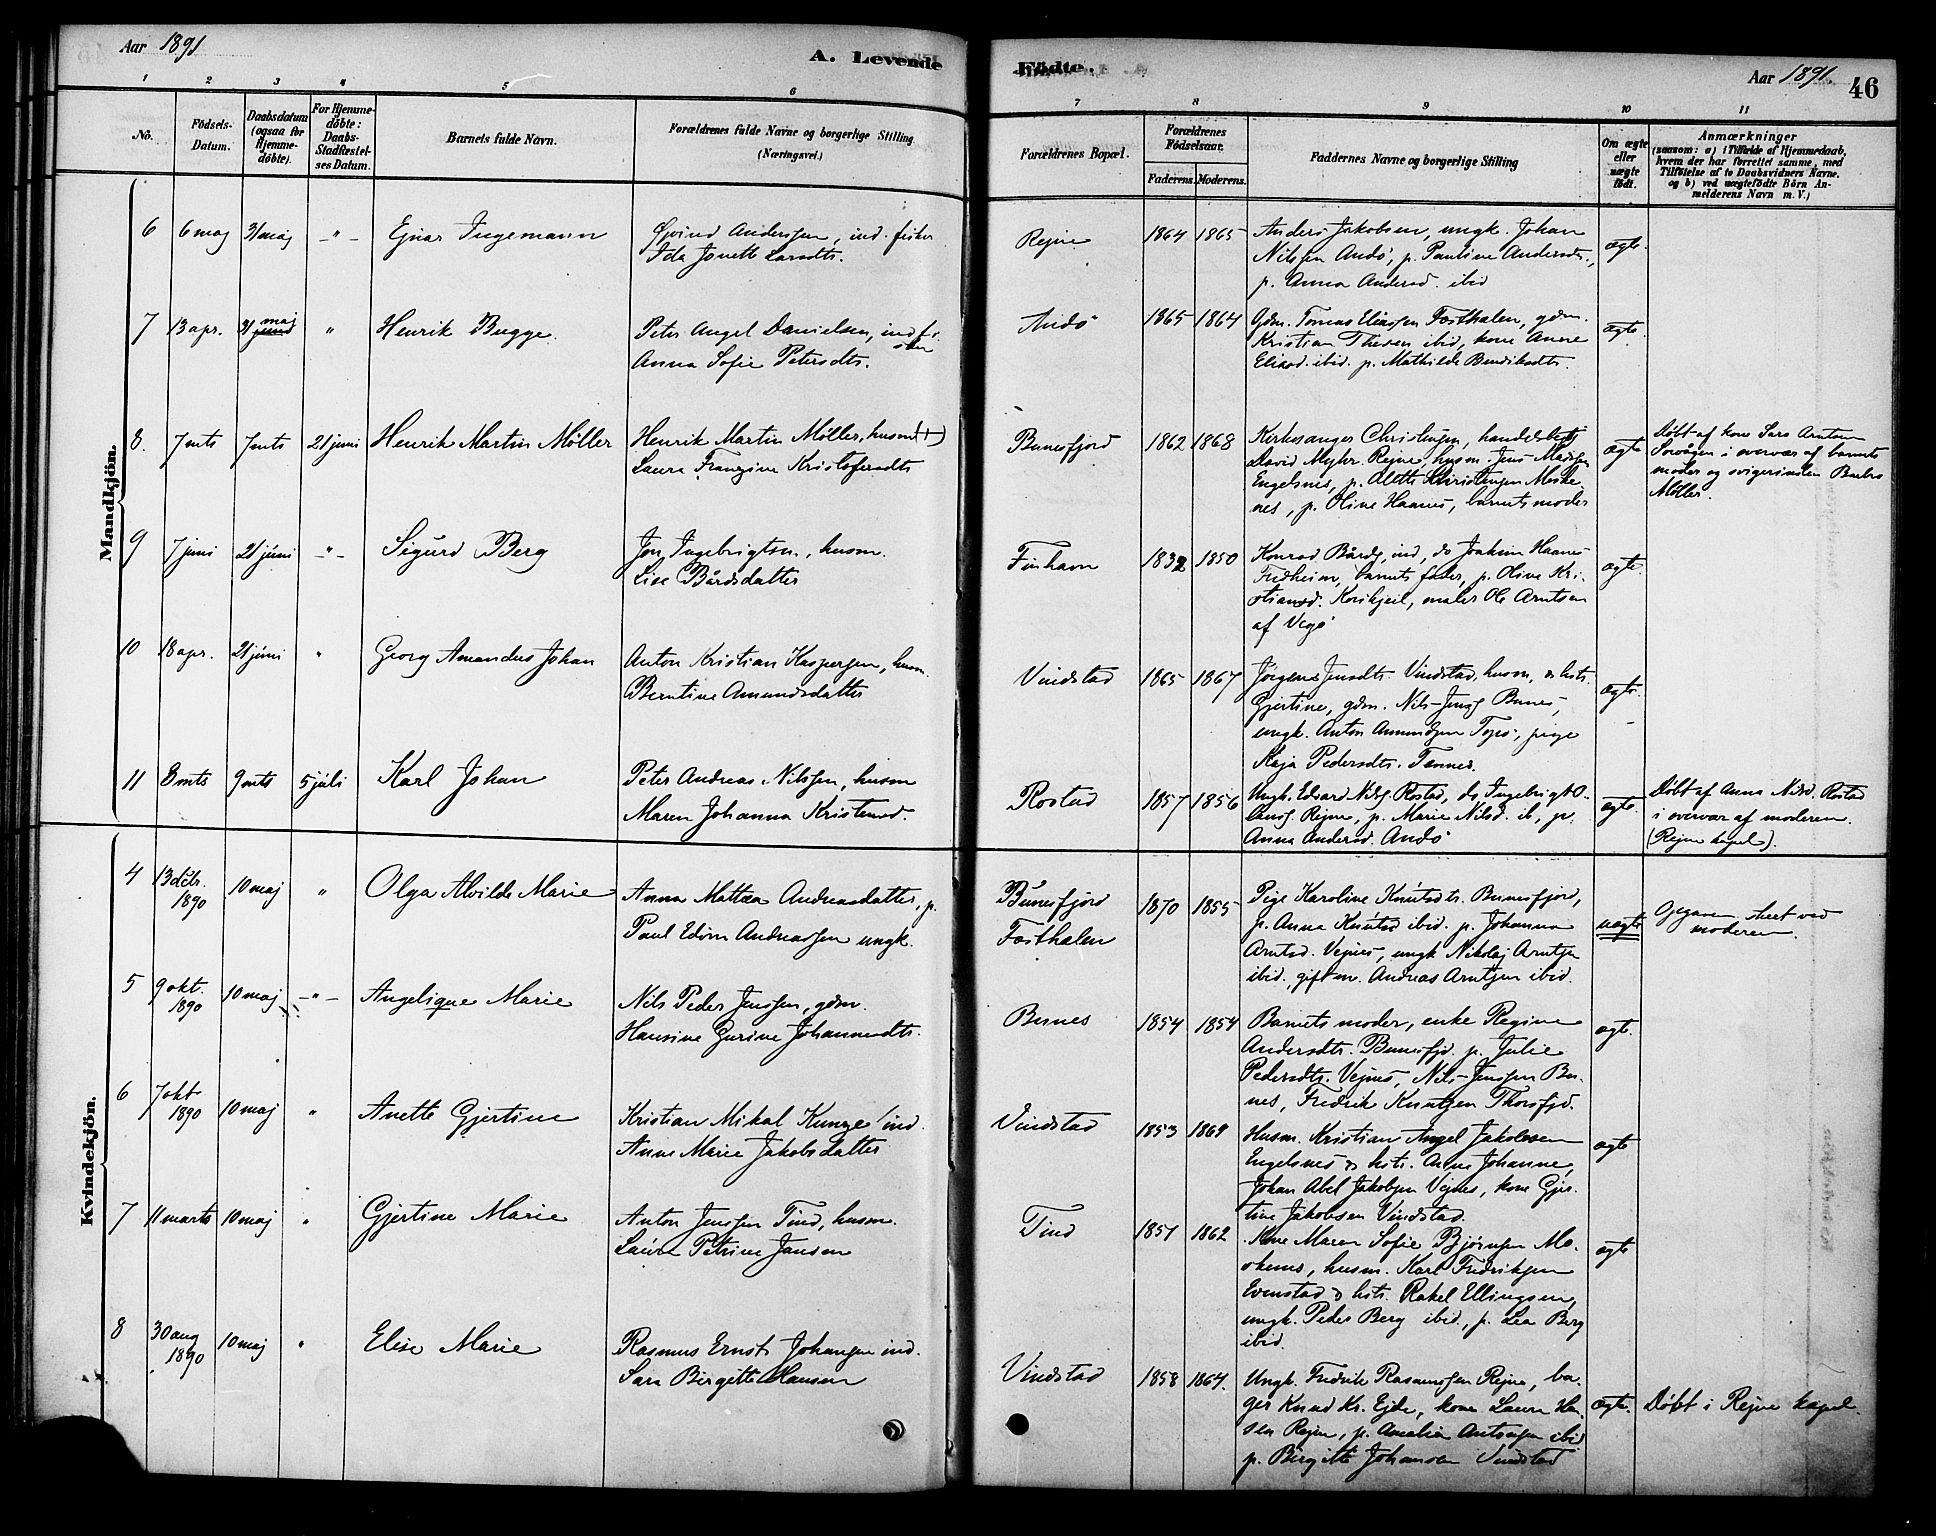 Aar 1891
A. Levende
Födte.
Aar 1891.
46
1 2 3 4 5 6
7 8 9 10 11
No.
Födsels-
Datum.
Daabsdatum
(ogsaa for
Hjemme-
döbte).
For Hjemme-
döbte:
Daabs-
Stadfæstel-
ses Datum.
Barnets fulde Navn.
Forældrenes fulde Navne og borgerlige Stilling
(Næringsvei.)
Forældrenes Bopæl.
Forældrenes
Födselsaar.
Faderens. Moderens.
Faddernes Navne og borgerlige Stilling
Om ægte
eller
uægte
födt.
Anmærkninger
(saasom: a) i Tilfælde af Hjemmedaab,
hvem der har forrettet samme, med
Tilföielse af to Daabsvidners Navne.
og b) ved uægtefödte Börn An-
melderens Navn m. V.)
Mandkjön.
6 6 maj 31 maj -"- Ejnar Ingemann
Øjvind Anderssen, ind. fisker
Ida Jonette Larsdtr.
Rejne 1864 1865
Anders Jakobsen, ungk. Johan
Nilssen Andö, p. Pauline Andersdtr.,
p. Anna Andersd. ibid
ægte
7 13 apr. 31 maj " Henrik Bugge.
Peter Angel Danielsen, ind. fi.
sker
Anna Sofie Petersdtr.
Andö 1865 1864
Gdm. Tomas Eliassen Fosthalen, gdm.
Kristian Thesen ibid, kone Anne
Eliasd. ibid. p. Mathilde Bendiksdtr.
ægte
8. 7 mts 7 mts 21 juni Henrik Martin Möller
Henrik Martin Möller, husm
Laura Franzine Kristofersdtr
Bunesfjord 1862 1868
Kirkesanger Christensen, handelsbetj
David Myhr. Rejne, husm. Jens Madsen
Engelsnes, p. Alette Christensen Moske-
nes, p. Oline Haanes, barnets moder
ægte
Döbt af kone Sara Arntsen
Sorvågen i overvær af barnets
moder og svigerinden Barbro
Möller.
9 7 juni 21 juni -"- Sigurd Berg
Jon Ingebrigtsn., husm.
Lise Bårdsdatter
Finhavn 1832 1850
Konrad Bårds, ind, do Joakim Haanes
Fredheim, barnets fader, p. Oline Kri-
stiansd. , maler Ole Arntsen
af Vegö
ægte
10 18 apr. 21 juni " Georg Amandus Johan
Anton Kristian Kaspersen, husm.
Berntine Amundsdatter
Vindstad 1865 1867
Jörgen Jensdtr. Vindstad, husm, & hstr.
Gjertine, gdm. Nils Jensens Bunes,
ungk. Anton Amundsen Topö, pige
Kaja Pedersdtr. Tennes.
ægte.
11 8 mts 9 mts 5 juli Karl Johan
Peter Andreas Nilssen, husm
Maren Johanna Kristensd.
Rostad 1857 1856
Ungk. Edvard Nils. Rostad, do Ingebrigt O-
laus. Rejne, p. Marie Nilsd. ib, p.
Anna Andersd. Andö
ægte
Döbt af Anna Nilsd. Rostad
i overvær af moderen.
(Rejne kapel).
Kvindekjön.
4 13 dcbr. 1890 10 maj " Olga Alvilde Marie
Anna Mattea Andreasdatter, p.
Paul Edvin Andreassen ungk.
Bunesfjord
Fosthalen
1870 1855
Pige Karoline Knutsdtr. Bunesfjord,
p. Anna Knutsd ibid. p. Johanna
Arntsd. Vejnes, ungk Nikolaj Arntsen
ibid., giftm. Andreas Arntsen ibid.
uægte
Opgaven skeet ved
moderen.
5 9 okt. 1890 10 maj -"- Angelique Marie
Nils Peder Jenssen, gdm.
Hansine Gurine Johannesdtr.
Bunes 1854 1854
Barnets moder, enke Regine
Andersdtr. Bunesfjd. p. Julie
Pedersdtr. Vejnes, Nils Jenssen Bu-
nes, Fredrik Knutzen Thorsfjd.
ægte
6 7 okt 1890 10 maj " Anette Gjertine
Kristian Mikal Kunze ind.
Anne Marie Jakobsdatter
Vindstad 1853 1869
Husm. Kristian Angel Jakobsen
Engelsnes & hstr. Anne Johanne,
Johan Abel Jakobsen Vejnes, kone Gjer-
tine Jakobsen Vindstad.
ægte
7 11 marts 10 maj " Gjertine Marie
Anton Jenssen Tind, husm.
Laura Petrine Jansen
Tind 1857 1862
Kone Maren Sofie Björnsen Mo-
skenes, husm. Karl Fredriksen
Evenstad & hstr. Rakel Ellingsen,
ungk. Peder Berg ibid, p. Lea Berg
ibid.
ægte
8 30 aug 1890 10 maj " Elise Marie
Rasmus Ernst Johansen ind.
Sara Birgitte Hansen
Vindstad 1858 1864.
Ungk. Fredrik Rasmussen Rejne, ba-
ger Knud Kr. Ejde, kone Laura Han-
sen Rejne, p. Amalia Antonsen ibid
p. Birgitte Johansen Vindstad
ægte.
Döbt i Rejne kapel.